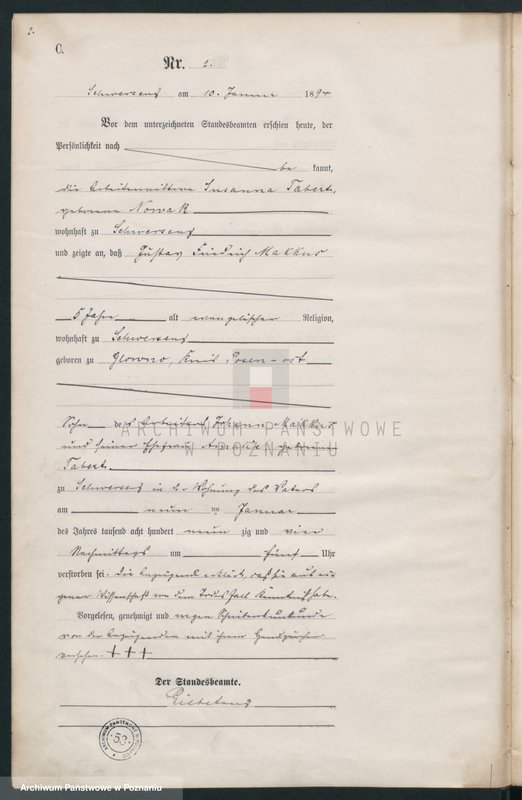 2.
C.
Nr. 2.
Schwersenz am 10. Januar 1894
Vor dem unterzeichneten Standesbeamten erschien heute, der
Persönlichkeit nach
be kannt,
die Arbeiterwittwe Susanna Tabert,
geborene Nowak
wohnhaft zu Schwersenz
und zeigte an, daß Gustav Friedrich Makkus
5 Jahre alt evangelischer Religion,
wohnhaft zu Schwersenz
geboren zu Glowno, Kreis Posen-Ost
Sohn des Arbeiters Johann Makkus
und seiner Ehefrau geborene
Tabert
zu Schwersenz in der Wohnung des Vaters
am neun ten Januar
des Jahres tausend acht hundert neun zig und vier
Nachmittags um fünf Uhr
verstorben sei. Die Anzeigende erklärt, daß sie aus ei
gener Wissenschaft von dem Todesfall Kenntniß habe.
Vorgelesen, genehmigt und wegen Schreibensunkunde
von der Anzeigenden mit ihrem Handzeichen
versehen. +++
Der Standesbeamte.
ARCHIWUM PAŃSTWOWE
W POZNANIU
53
Archiwum Państwowe w Poznaniu